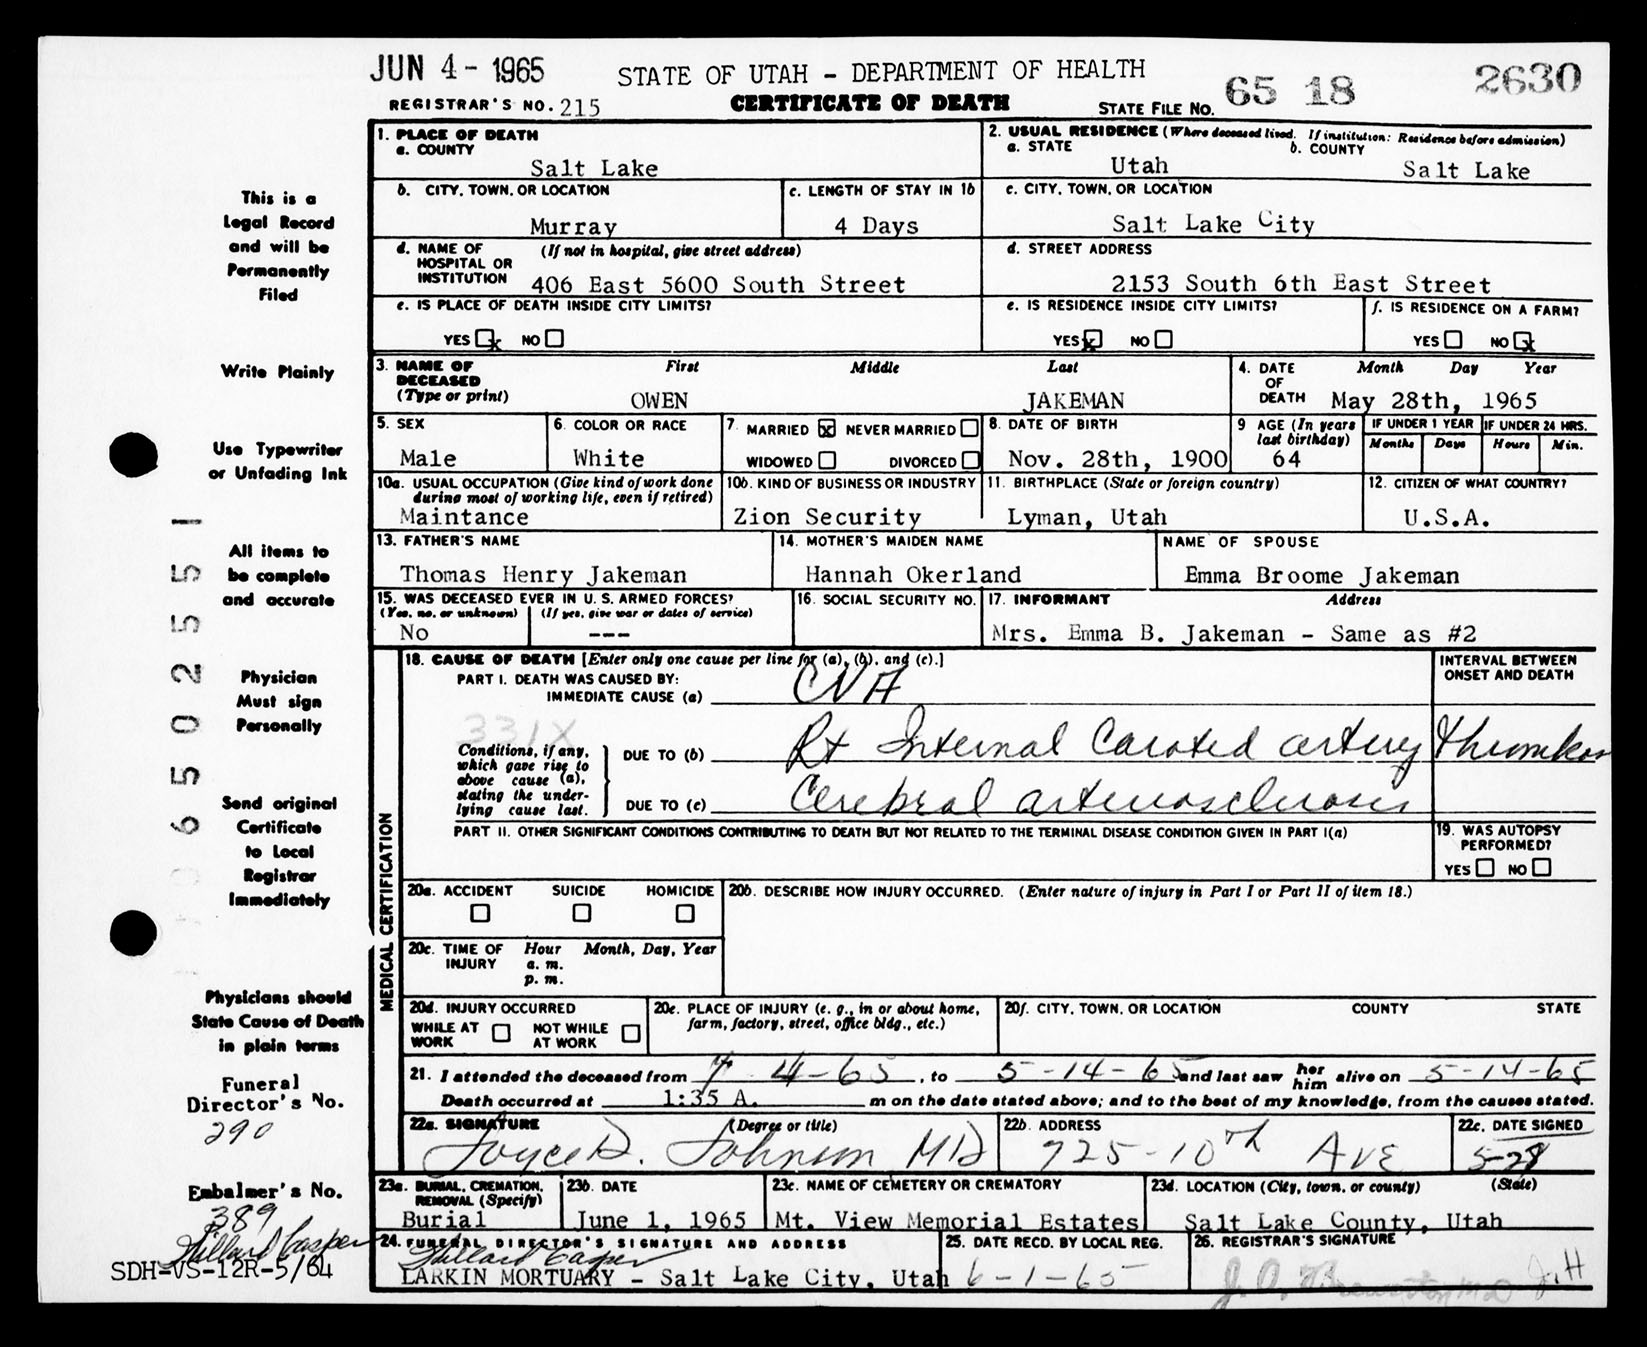 JUN 4 - 1965
STATE OF UTAH - DEPARTMENT OF HEALTH
65 18 2630
REGISTRAR'S NO. 215 CERTIFICATE OF DEATH STATE FILE NO.
This is a
Legal Record
and will be
Permanently
Filed
Write Plainly
Use Typewriter
or Unfading Ink
All items to
be complete
and accurate
Physician
Must sign
Personally
Send original
Certificate
to Local
Registrar
Immediately
Physicians should
State Cause of Death
in plain terms
Funeral
Director's No.
290
Embalmer's No.
389
Hillard Casper
SDH-VS-12R-5/64
1. PLACE OF DEATH
a. COUNTY
Salt Lake
2. USUAL RESIDENCE (Where deceased lived. If institution: Residence before admission)
a. STATE b. COUNTY
Utah Salt Lake
b. CITY, TOWN, OR LOCATION
Murray
c. LENGTH OF STAY IN 1b
4 Days
c. CITY, TOWN, OR LOCATION
Salt Lake City
d. NAME OF (If not in hospital, give street address)
HOSPITAL OR
INSTITUTION 406 East 5600 South Street
d. STREET ADDRESS
2153 South 6th East Street
e. IS PLACE OF DEATH INSIDE CITY LIMITS?
YES x NO
e. IS RESIDENCE INSIDE CITY LIMITS?
YES x NO
f. IS RESIDENCE ON A FARM?
YES NO x
3. NAME OF First Middle Last
DECEASED
(Type or print) OWEN JAKEMAN
4. DATE Month Day Year
OF
DEATH May 28th, 1965
5. SEX
Male
6. COLOR OR RACE
White
7. MARRIED x NEVER MARRIED
WIDOWED DIVORCED
8. DATE OF BIRTH
Nov. 28th, 1900
9 AGE (In years
last birthday)
64
IF UNDER 1 YEAR IF UNDER 24 HRS.
Months Days Hours Min.
10a. USUAL OCCUPATION (Give kind of work done
during most of working life, even if retired)
Maintance
10b. KIND OF BUSINESS OR INDUSTRY
Zion Security
11. BIRTHPLACE (State or foreign country)
Lyman, Utah
12. CITIZEN OF WHAT COUNTRY?
U.S.A.
13. FATHER'S NAME
Thomas Henry Jakeman
14. MOTHER'S MAIDEN NAME
Hannah Okerland
NAME OF SPOUSE
Emma Broome Jakeman
15. WAS DECEASED EVER IN U.S. ARMED FORCES?
(Yes, no, or unknown) (If yes, give war or dates of service)
No ---
16. SOCIAL SECURITY NO.
17. INFORMANT Address
Mrs. Emma B. Jakeman - Same as #2
MEDICAL CERTIFICATION
18. CAUSE OF DEATH [Enter only one cause per line for (a), (b), and (c).]
PART I. DEATH WAS CAUSED BY:
IMMEDIATE CAUSE (a) CVA
INTERVAL BETWEEN
ONSET AND DEATH
331X
Conditions, if any,
which gave rise to
above cause (a),
stating the under-
lying cause last.
DUE TO (b) Rt Internal Carotid artery
DUE TO (c) Cerebral arteriosclerosis
PART II. OTHER SIGNIFICANT CONDITIONS CONTRIBUTING TO DEATH BUT NOT RELATED TO THE TERMINAL DISEASE CONDITION GIVEN IN PART I(a)
19. WAS AUTOPSY
PERFORMED?
YES NO
20a. ACCIDENT SUICIDE HOMICIDE
20b. DESCRIBE HOW INJURY OCCURRED. (Enter nature of injury in Part I or Part II of item 18.)
20c. TIME OF Hour Month, Day, Year
INJURY a. m.
p. m.
20d. INJURY OCCURRED
WHILE AT NOT WHILE
WORK AT WORK
20e. PLACE OF INJURY (e. g., in or about home,
farm, factory, street, office bldg., etc.)
20f. CITY, TOWN, OR LOCATION COUNTY STATE
21. I attended the deceased from 4-65, to 5-14-65 and last saw her him alive on 5-14-65
Death occurred at 1:35 A. m on the date stated above; and to the best of my knowledge, from the causes stated.
22a. SIGNATURE (Degree or title)
Joyce D. Johnson MD
22b. ADDRESS
725-10th Ave
22c. DATE SIGNED
5-28
23a. BURIAL, CREMATION,
REMOVAL (Specify)
Burial
23b. DATE
June 1, 1965
23c. NAME OF CEMETERY OR CREMATORY
Mt. View Memorial Estates
23d. LOCATION (City, town, or county) (State)
Salt Lake County, Utah
24. FUNERAL DIRECTOR'S SIGNATURE AND ADDRESS
Hillard Casper
LARKIN MORTUARY - Salt Lake City, Utah
25. DATE RECD. BY LOCAL REG.
6-1-65
26. REGISTRAR'S SIGNATURE